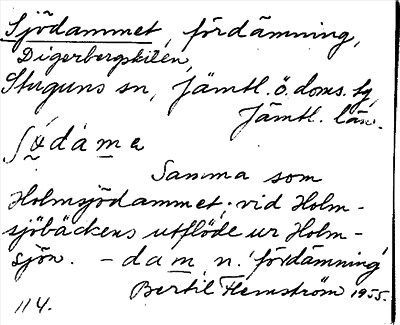 Sjödammet, fördämning,
Digerbergskilen,
Stuguns sn, Jämtl. ö. doms. tg,
Jämtl. län.
ʃö́dàma
Samma som
Holmsjödammet, vid Holm-
sjöbäckens utflöde ur Holm-
sjön. - dam n. 'fördämning'
Bertil Flemström 1955.
114.